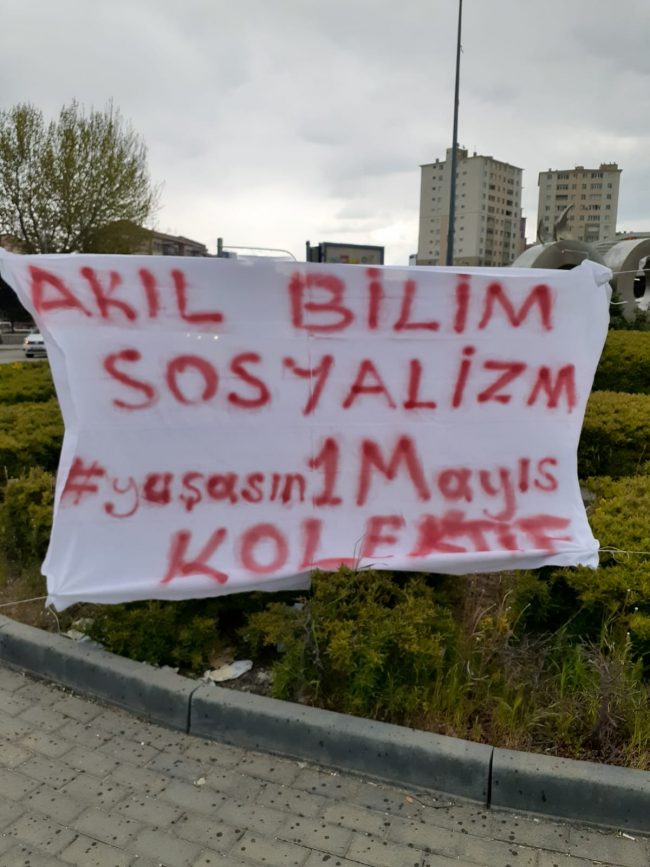 AKIL BİLİM
SOSYALİZM
#yaşasın 1 Mayıs
KOLEKTİF